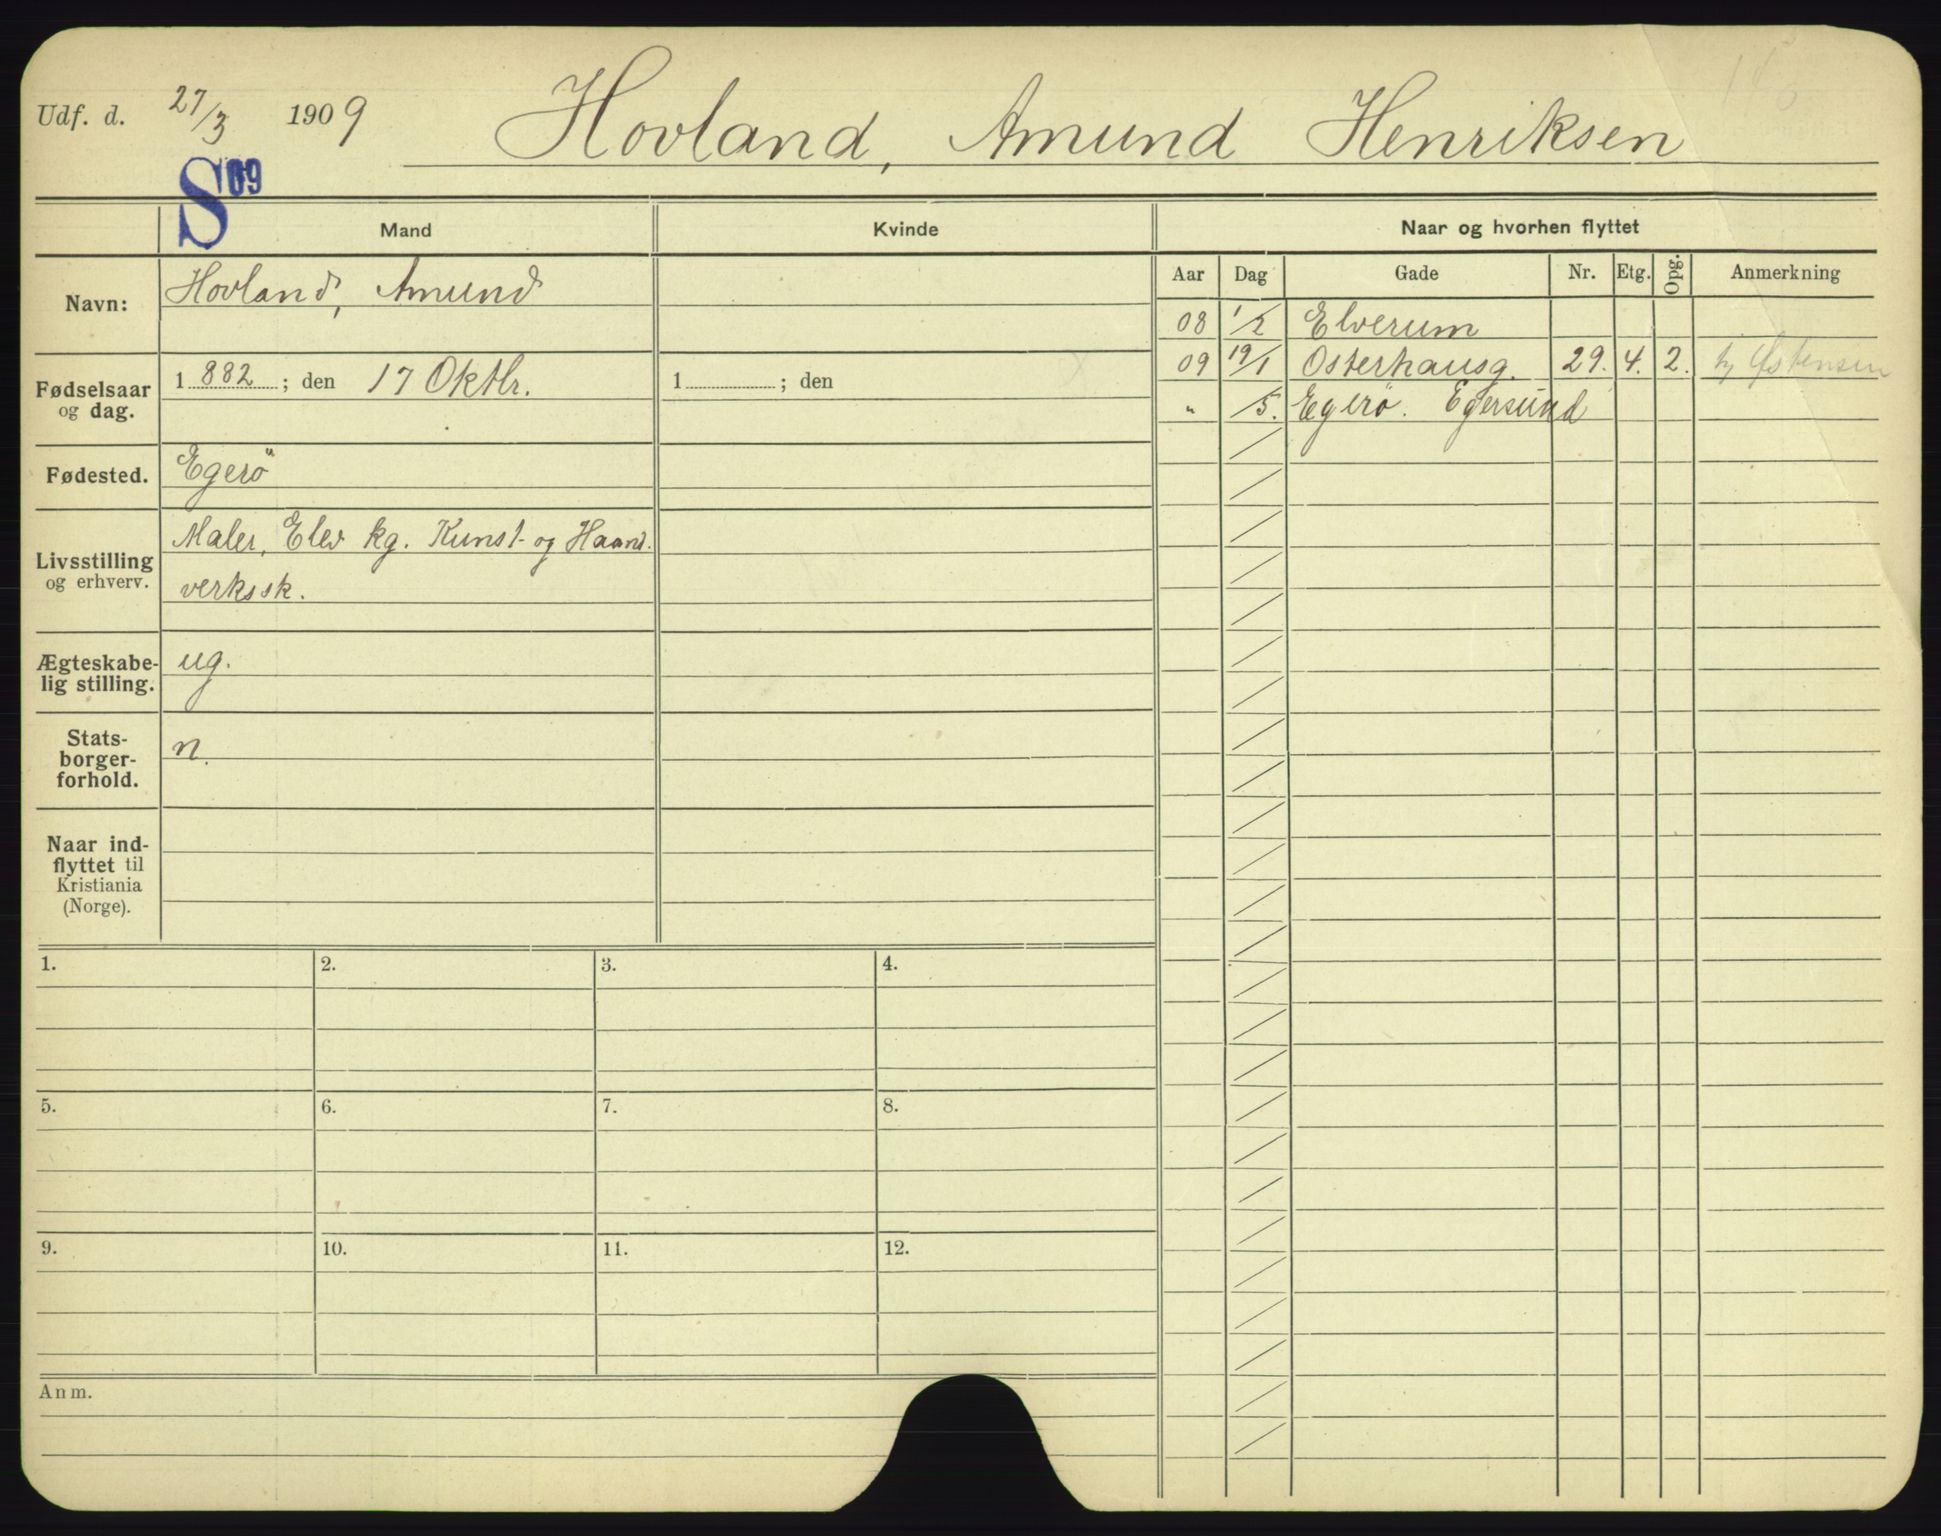 Udf. d. 27/3 1909 Hovland, Amund Henriksen
S 09
Mand Kvinde Naar og hvorhen flyttet
Aar Dag Gade Nr. Etg. Opg. Anmerkning
Navn: Hovland, Amund
08 1/2 Elverum
09 19/1 Osterhausg. 29. 4. 2. Østensen
" /5. Egerö. Egersund
Fødselsaar
og dag.
1882; den 17 Oktbr. 1 ; den
Fødested. Egerö
Livsstilling
og erhverv.
Maler, Elev kg. Kunst- og Haand-
verkssk.
Ægteskabe-
lig stilling.
ug.
Stats-
borger-
forhold.
n.
Naar ind-
flyttet til
Kristiania
(Norge).
1. 2. 3. 4.
5. 6. 7. 8.
9. 10. 11. 12.
Anm.